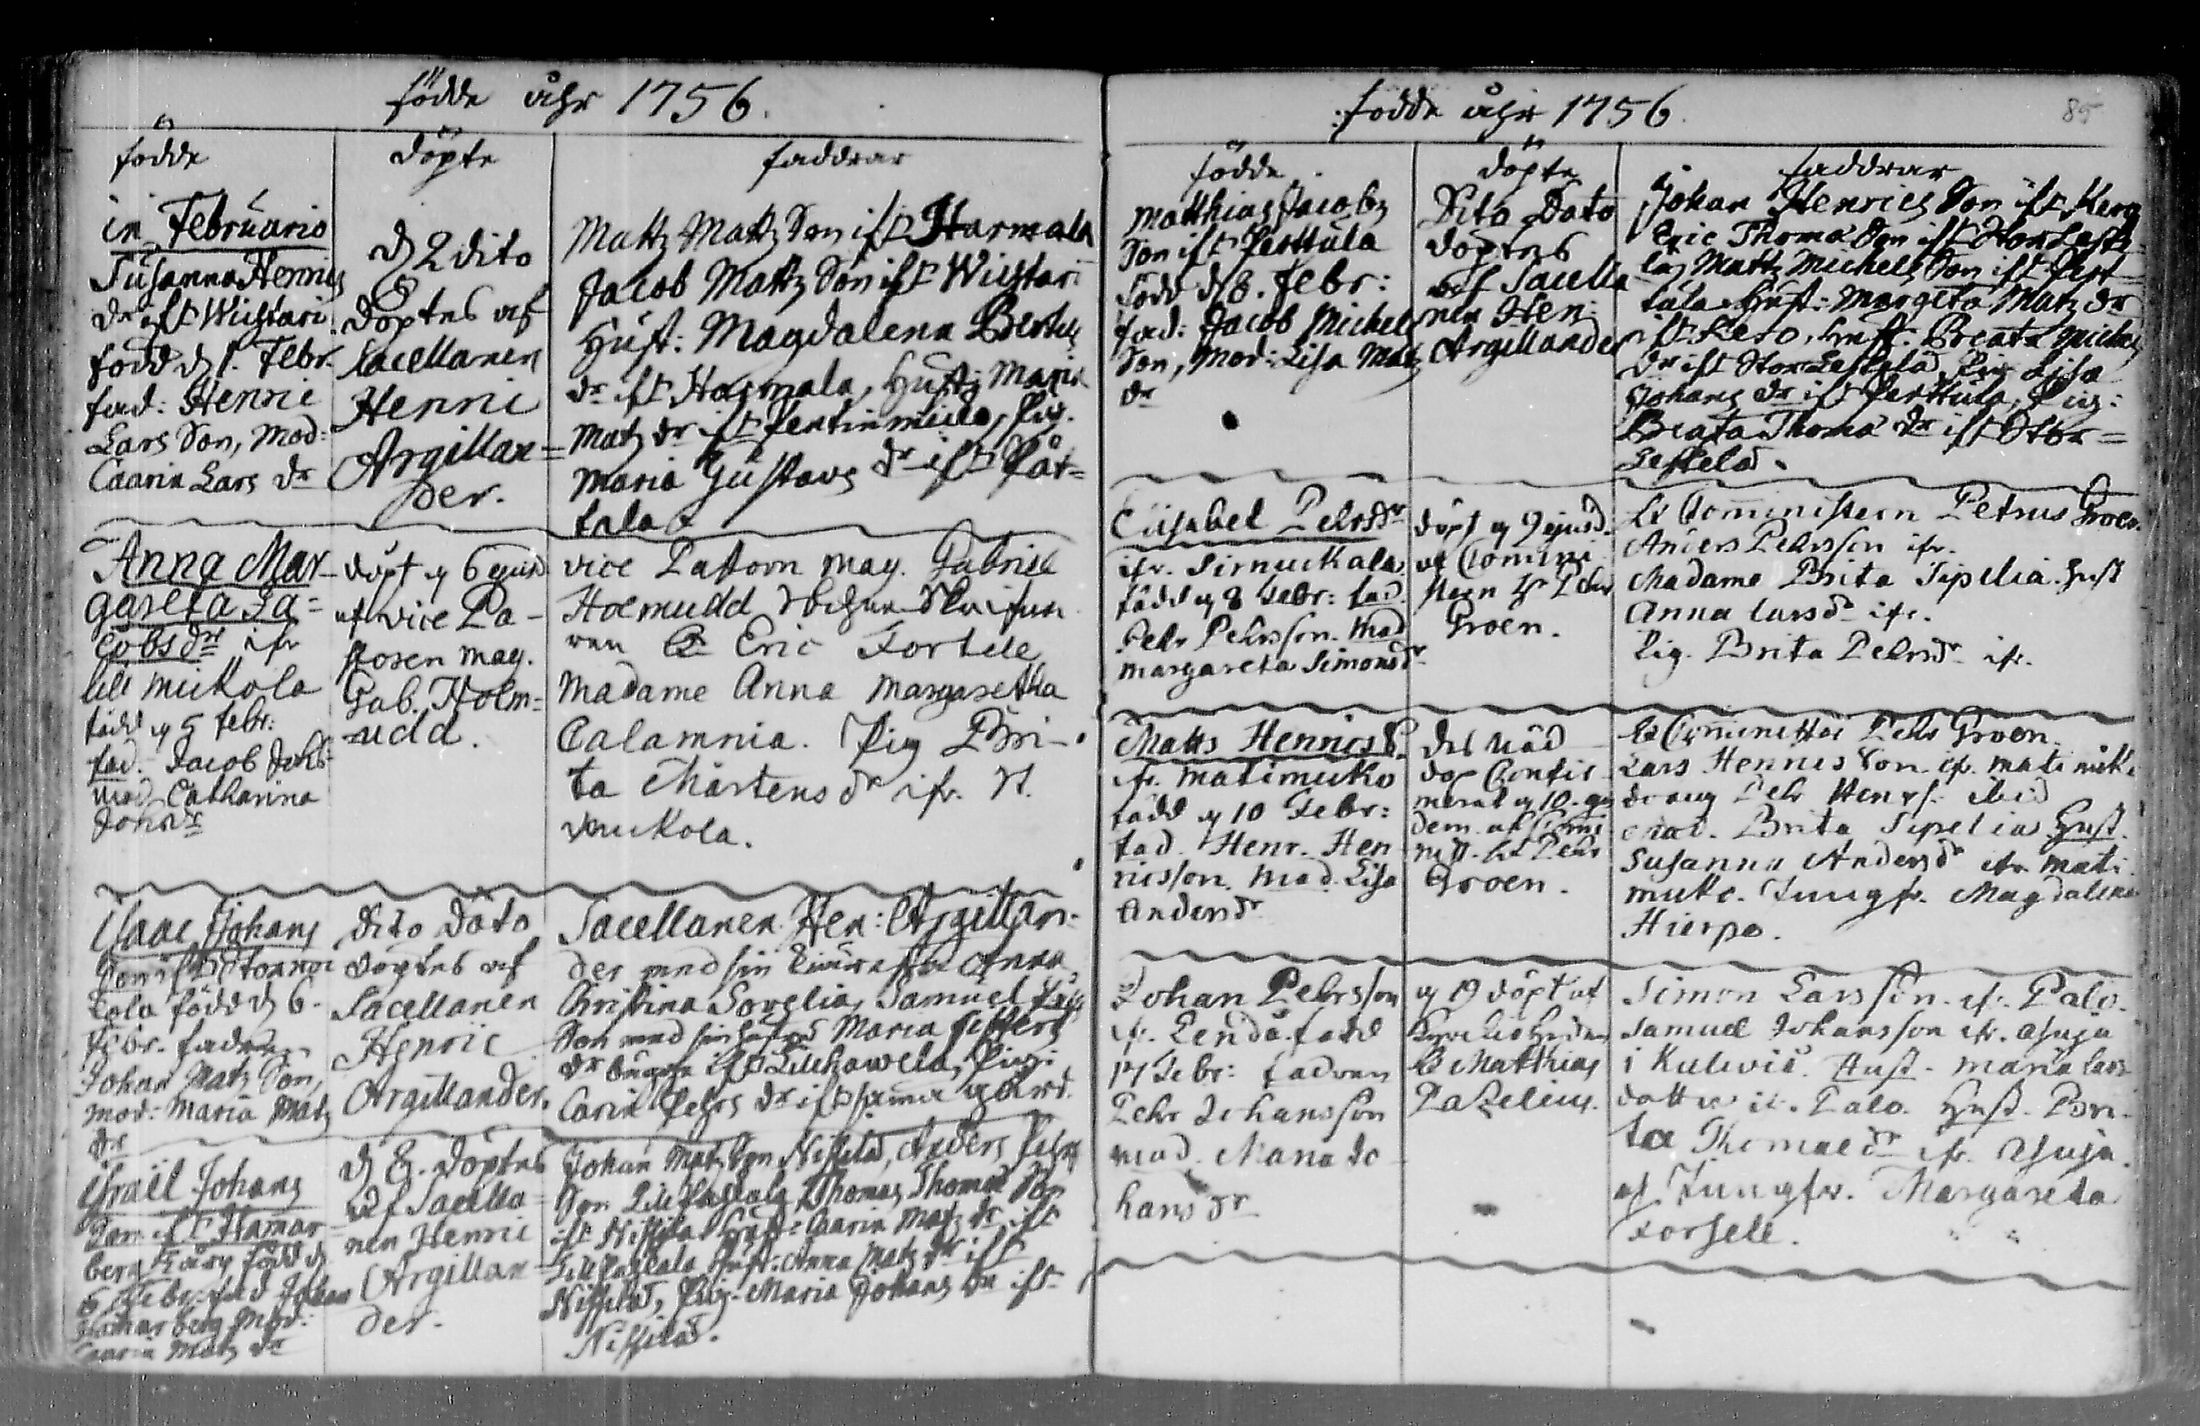 födde åhr 1756.
födde
döpte
faddrar
in Februario
Susanna Henrics
dr ifr Wiistari
född d 1. Febr.
fad: Henric
Lars Son, Mod:
Caarin Lars dr
d 2 dito
döptes af
Sacellanen
Henric
Argillan=
der.
Matz Matz Son ifr Harmala
Jacob Matz Son ifr Wiistari
Hust: Magdalena Bertels
dr ifr Harmala, Hust: Maria
Matz dr ifr Pentinmula, Pig.
Maria Gustavs dr ifr Pär=
tala
Anna Mar-
gareta Ja=
cobs dr ifr
lill mukola
född d 5 febr:
fad. Jacob
mod. Catharina
döpt d 6 ejusd
af vice Pa-
storen mag.
Gab. Holm=
udd.
vice Pastorn mag. Gabriel
Holmudd
Eric Fortele
Madame Anna Margaretha
Calamnia. Pig Bri-
ta Mårtens dr ifr.
mukola.
Isaac Johans
Son ifr
kola född d 6.
Febr. fadren
Johan Matz Son,
mod: Maria Matz
dr
Dito Dato
döptes af
Sacellanen
Henric
Argillander.
Sacellanen Hen: Argillan-
der med sin kiära Anna
Christina Sovelia, Samuel
Son med sin hustru Maria
dr ifr Lillhawela, Pig:
Carin Pehrs dr ifr samma gård.
Israel Johans
Son ifr Hamar
berg född d
6 Febr. fad Johan
Hamarberg Mod:
Caarin Matz dr
d 8. döptes
af Sacella=
nen Henric
Argillan=
der.
Johan Matz Son Nissilä, Anders Pehrs
Son Lill Thomas Thomas Son
ifr Nissilä Hust: Caarin Matz dr ifr
Lill Hust: Anna Matz dr ifr
Nissilä, Pig. Maria Johans dr ifr
Nissilä.
födde åhr 1756.
85
födde
döpte
faddrar
Matthias Jacobs
Son ifr Perttula
född d 8. Febr:
fad: Jacob Michels
Son, Mod: Lisa Matz
dr
Dito Dato
döptes
af Sacella
nen Hen:
Argillander
Johan Henrics Son ifr Kero
Eric Thomas Son ifr Stor
Matz Michels Son ifr Pert=
tula Hust: Margeta Matz dr
ifr Kero, Hust: Breata Michels
dr ifr Stor Pig Lisa
Johans dr ifr Perttula, Pig:
Breata Thomas dr ifr Stor=
Elisabet Pehrsdr
ifr. Sirnuckala
född d 8 Febr: fad.
Pehr Pehrsson. Mod
margareta Simonsdr
döpt d 9 ejusd.
af Comini
stern Hr Pehr
Groen.
Hr Comministern Petrus Groen.
Anders Pehrsson ifr.
Madame Brita Sipelia. Hust
Anna larsdr ifr.
Pig. Brita Pehrsdr ifr.
Matts Henricss.
ifr. matimuko
född d 10 Febr:
fad. Henr. Hen
ricsson. Mod. Lisa
Andersdr
Dess Nöd
dop Confir
merat d 10. ejus
dem af Comi
nist. Hr Pehr
Groen.
Hr Comminister Pehr Groen.
Lars Henrics Son ifr. mati muko
dräng Pehr Henrs: ibid
Mad. Brita Sipelia Hust.
Susanna Andersdr ifr mati
muko. Jungfr. Magdalena
Hierpe.
Johan Pehrsson
ifr. Lendä född
17 Febr: fadren
Pehr Johansson
mod. Maria Jo
hansdr
d 19 döpt af
Matthias
Pazelius.
Simon Larsson ifr. Palo.
Samuel Johansson ifr. Asuja
i Kulwis. Hust. maria lars
dotter ifr. Palo. Hust. Bri-
ta Thomae dr ifr. Asuja.
af Jungfr. Margareta
Forsele.